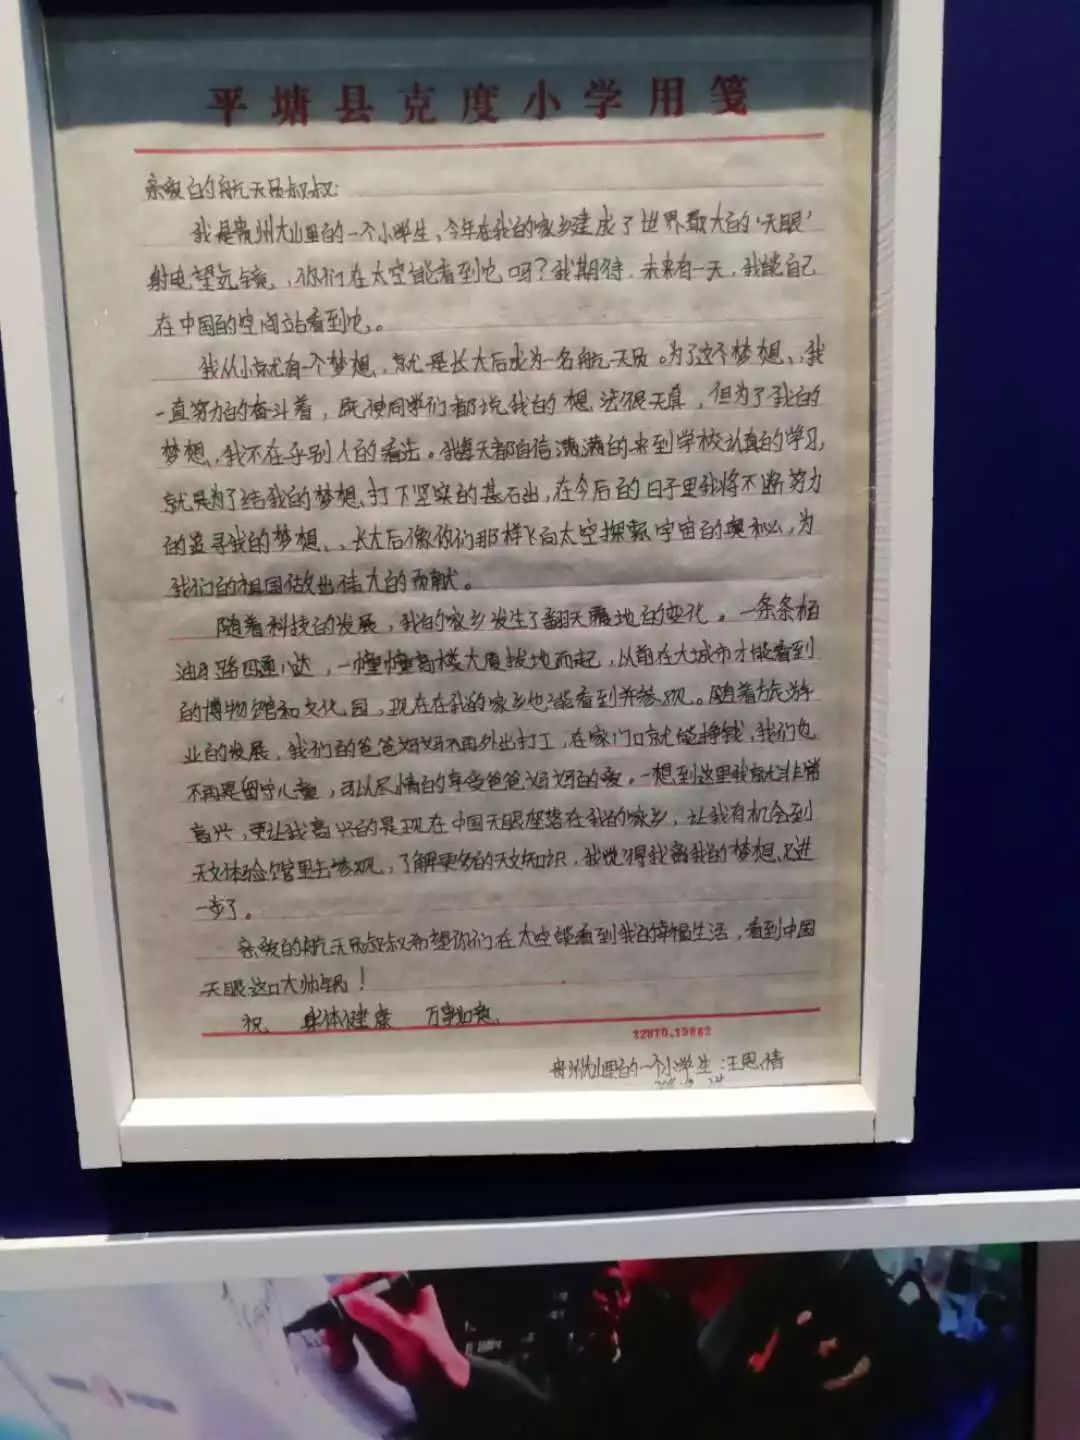 平塘县克度小学用笺
亲敬的航天员叔叔:
我是贵州大山里的一个小学生,今年在我的家乡建成了世界最大的“天眼”
射电望远镜,你们在太空能看到它吗?我期待,未来有一天,我能自己
在中国的空间站看到它。
我从小就有一个梦想,就是长大后成为一名航天员。为了这个梦想,我
一直努力的奋斗着,既使同学们都说我的想法很天真,但为了我的
梦想,我不在乎别人的看法。我每天都自信满满的来到学校认真的学习,
就是为了给我的梦想打下坚实的基石出,在今后的日子里我将不断努力
的追寻我的梦想,长大后像你们那样飞向太空探索宇宙的奥秘,为
我们的祖国做出伟大的贡献。
随着科技的发展,我的家乡发生了翻天覆地的变化。一条条柏
油马路四通八达,一幢幢高楼大厦拔地而起,以前在大城市才能看到
的博物馆和文化园,现在在我的家乡也能看到并参观。随着旅游
业的发展,我们的爸爸妈妈不再外出打工,在家门口就能挣钱,我们也
不再是留守儿童,可以尽情的享受爸爸妈妈的爱。一想到这里我就非常
高兴,更让我高兴的是现在中国天眼座落在我的家乡,让我有机会到
天文体验馆里去参观,了解更多的天文知识,我觉得我离我的梦想又进
一步了。
亲敬的航天员叔叔希望你们在太空能看到我的幸福生活,看到中国
天眼这口大帅锅!
祝 身体健康 万事如意
22810.19862
贵州大山里的一个小学生:汪思倩